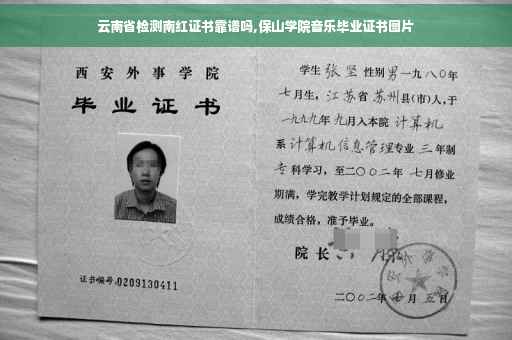 云南省检测南红证书靠谱吗,保山学院音乐毕业证书图片
西安外事学院
毕业证书
证书编号:0209130411
学生 张坚 性别 男 一九八〇年
七月生, 江苏省 苏州 县(市)人,于
一九九九年 九月入本院 计算机
系 计算机信息管理 专业 三 年制
专 科学习, 至二〇〇二年 七月修业
期满, 学完教学计划规定的全部课程,
成绩合格, 准予毕业。
院长
二〇〇二年 七月 五日